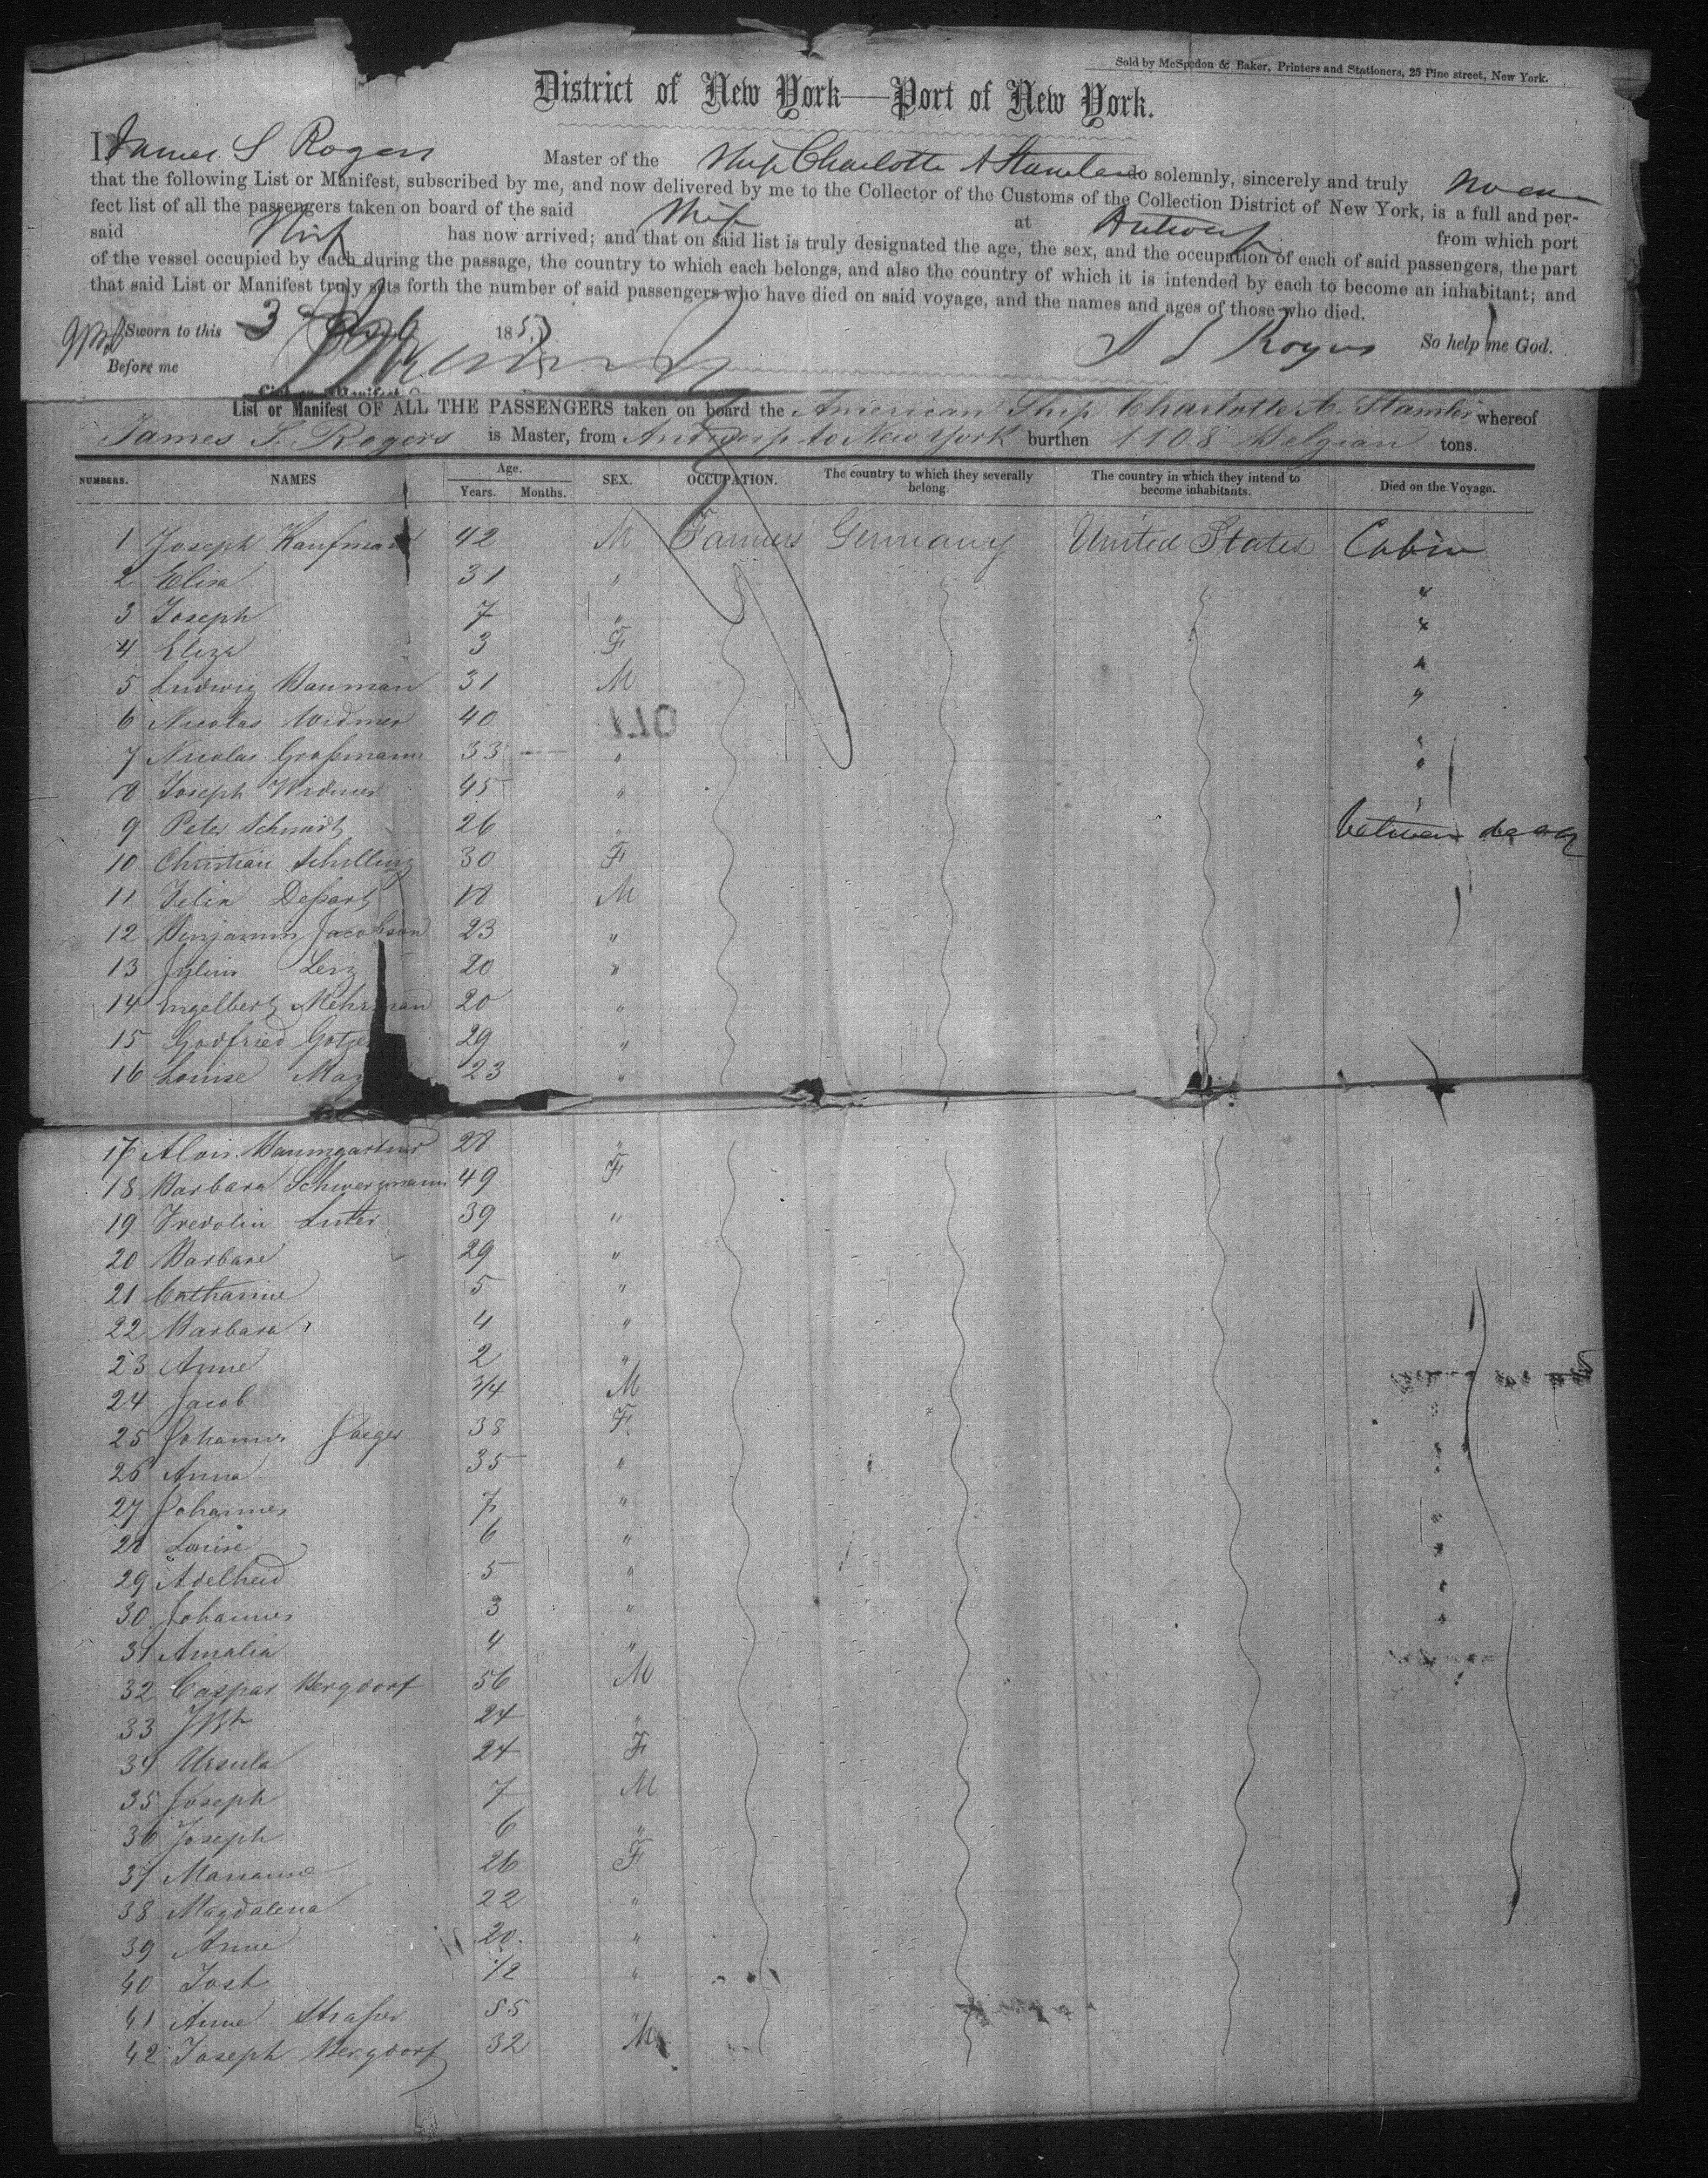 Sold by McSpedon & Baker, Printers and Stationers, 25 Pine street, New York.
District of New York—Port of New York.
I, James S Rogers Master of the Ship Charlotte A Stamler do solemnly, sincerely and truly swear
that the following List or Manifest, subscribed by me, and now delivered by me to the Collector of the Customs of the Collection District of New York, is a full and per-
fect list of all the passengers taken on board of the said Ship at Antwerp from which port
said Ship has now arrived; and that on said list is truly designated the age, the sex, and the occupation of each of said passengers, the part
of the vessel occupied by each during the passage, the country to which each belongs, and also the country of which it is intended by each to become an inhabitant; and
that said List or Manifest truly sets forth the number of said passengers who have died on said voyage, and the names and ages of those who died.
Sworn to this 3 185 J S Rogers So help me God.
Before me
List or Manifest OF ALL THE PASSENGERS taken on board the American Ship Charlotte A. Stamler whereof
James S. Rogers is Master, from Antwerp to New York burthen 1108 Belgian tons.
NUMBERS. NAMES Age. Years. Months. SEX. OCCUPATION. The country to which they severally belong. The country in which they intend to become inhabitants. Died on the Voyage.
1 Joseph Kaufmann 42 M Farmers Germany United States Cabin
2 Elisa 31 "
3 Joseph 7 "
4 Eliza 3 F
5 Ludwig Bauman 31 M
6 Nicolas Widmer 40
7 Nicolas Großmann 33 "
8 Joseph Widmer 45 "
9 Peter Schmidt 26 between deck
10 Christian Schilling 30 F
11 Felix 18 M
12 Benjamin Jacobson 23 "
13 Julius 20 "
14 Engelbert Mehrman 20 "
15 Godfried 29 "
16 Louise 23 "
17 Alois Baumgartner 28 "
18 Barbara Schwerzmann 49 F
19 Fredolin Luter 39 "
20 Barbara 29 "
21 Catharine 5 "
22 Barbara 4 "
23 Anne 2 "
24 Jacob 3/4 M
25 Johannes Jaeger 38 F
26 Anna 35 "
27 Johannes 7 "
28 Louise 6 "
29 Adelheid 5 "
30 Johannes 3 "
31 Amalia 4 "
32 Caspar Bergdorf 56 M
33 24 "
34 Ursula 24 F
35 Joseph 7 M
36 Joseph 6 "
37 Marianne 26 F
38 Magdalena 22 "
39 Anne 20 "
40 Jost 1/2 "
41 Anne Straßer 55 "
42 Joseph Bergdorf 32 M